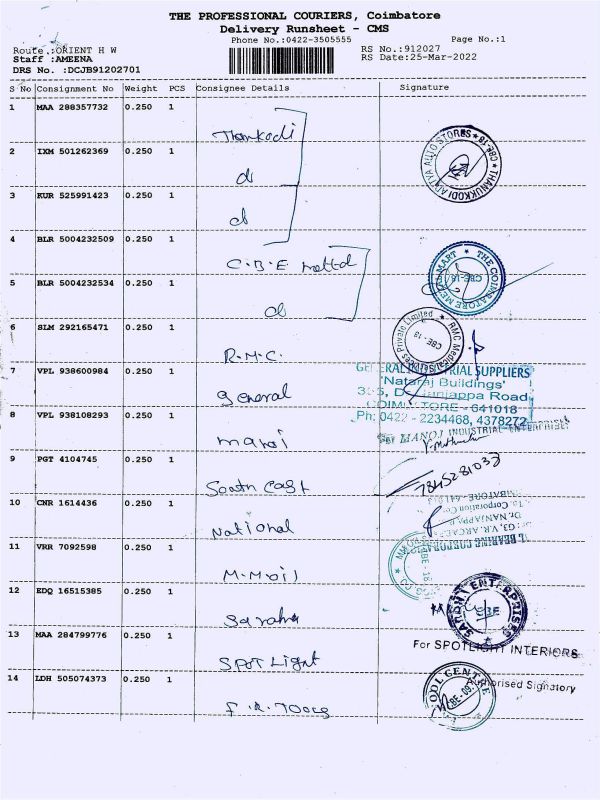 THE PROFESSIONAL COURIERS, Coimbatore
Delivery Runsheet - CMS
Phone No.:0422-3505555 Page No.:1
Route :ORIENT H W RS No.:912027
Staff :AMEENA RS Date:25-Mar-2022
DRS No. :DCJB91202701
S No Consignment No Weight PCS Consignee Details Signature
1 MAA 288357732 0.250 1 Thankodi
2 IXM 501262369 0.250 1 do
THANUKKODI AUTO STORES ★ CBE-18 ★
3 KUR 525991423 0.250 1 do
4 BLR 5004232509 0.250 1 C.B.E mettal
THE COIMBATORE METAL MART ★ CBE-18
5 BLR 5004232534 0.250 1 do
6 SLM 292165471 0.250 1 R.M.C.
RMC Medical Services Private Limited ★ CBE - 18
7 VPL 938600984 0.250 1 General
GENERAL INDUSTRIAL SUPPLIERS
'Nataraj Buildings'
Nanjappa Road
COIMBATORE - 641018
Ph: 0422 - 2234468, 4378272
8 VPL 938108293 0.250 1 manoj
For MANOJ INDUSTRIAL ENTERPRISES
9 PGT 4104745 0.250 1 South East
7845281033
10 CNR 1614436 0.250 1 National
Dr. NANJAPPA
BEARING CORPORATION
11 VRR 7092598 0.250 1 M.Moil
12 EDQ 16515385 0.250 1 Saraha
ENTERPRISES CBE
13 MAA 284799776 0.250 1 SPOT Light
For SPOTLIGHT INTERIORS
Authorised Signatory
14 LDH 505074373 0.250 1 F.R.Tools